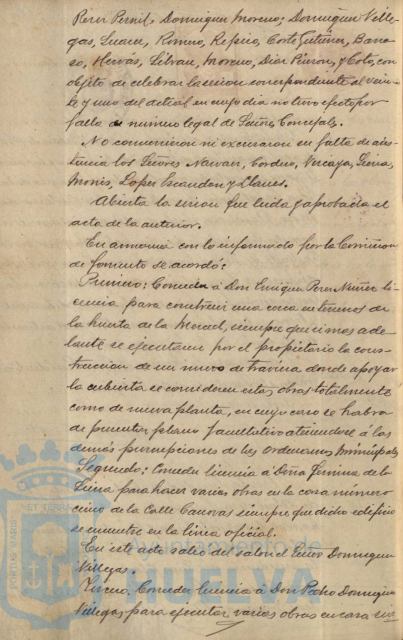 Perez Pernil, Dominguez Moreno, Dominguez Ville-
gas, Suarez, Romero, Repiso, Corte Gutierrez, Barra-
so, Hervás, Moreno, Diaz y Coto, con
objeto de celebrar la sesion correspondiente al vein-
te y uno del actual en cuyo dia no tuvo efecto por
falta de número legal de Señores Concejales.
No concurrieron ni excusaron su falta de asis-
tencia los Señores Cordero, Vizcaya,
Monis, Lopez Escandon y Llanes.
Abierta la sesion fué leida y aprobada el
acta de la anterior.
En armonia con lo informado por la Comision
de Fomento se acordó:
Primero: Conceder á Don Enrique Perez Nuñez li-
cencia para construir una casa en terrenos de
la huerta de la Merced, siempre que si mas ade-
lante se ejecutara por el propietario la cons-
truccion de un muro de travesia donde apoyar
la cubierta se consideren estas obras totalmente
como de nueva planta, en cuyo caso se habra
de presentar plano facultativo ateniendose á las
demás prescripciones de las Ordenanzas Municipales.
Segundo: Conceder licencia á Doña de la
para hacer varias obras en la casa número
cinco de la Calle Canovas siempre que dicho edificio
se encuentre en la linea oficial.
En este acto salió del salon el Señor Dominguez
Villegas.
Tercero: Conceder licencia á Don Pedro Dominguez
Villegas, para ejecutar varias obras en casa
PORTUS MARIS ET TERRAE
HUELVA